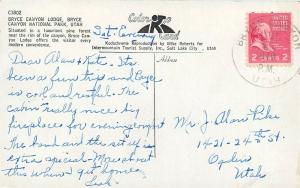 C3802
BRYCE CANYON LODGE, BRYCE
CANYON NATIONAL PARK, UTAH
Situated in a luxurious pine forest
near the rim of the canyon, Bryce Canyon
Lodge offers the visitor every
modern convenience.
Color
Card
Kodachrome reproduction by Mike Roberts for
Intermountain Tourist Supply, Inc., Salt Lake City, Utah
Sat. Evening
Address
Dear Alan & Kate - It's
been a fun trip and Bryce
is cool and restful. The
cabin really nice big
fireplace for evening
The food and the set up is
extra special - More about
this when I get home
Leah
Mr. J. Alan
1421 - 24th St.
Ogden
Utah
2 CENTS 2
P.M.
UTAH